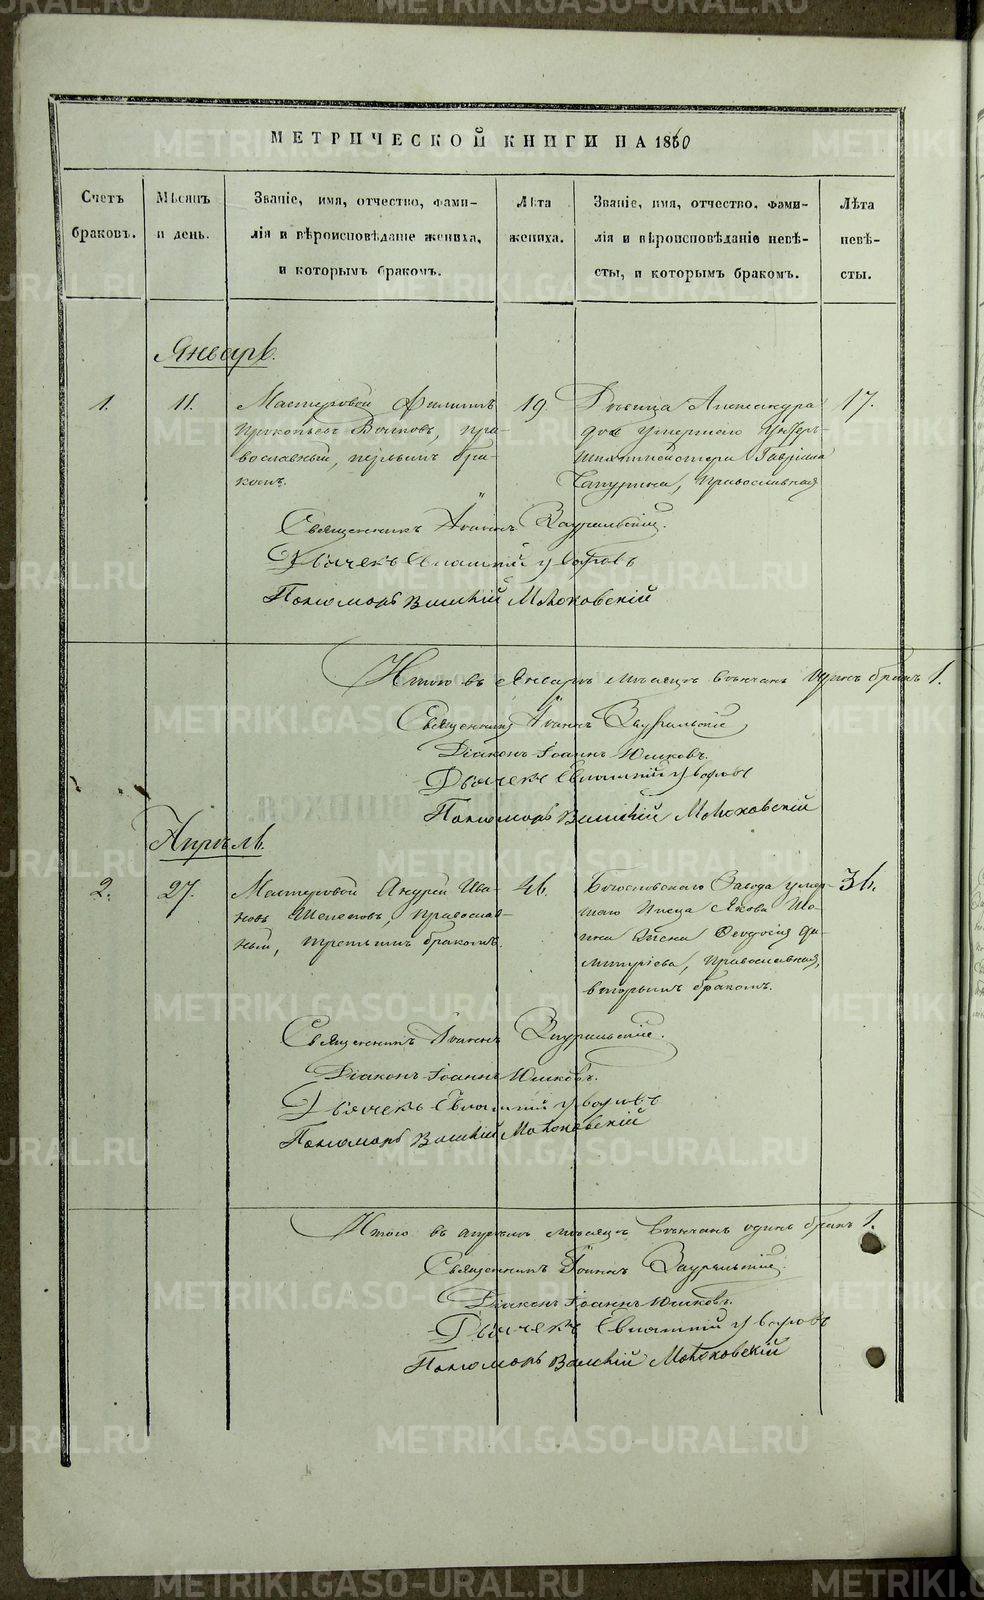 МЕТРИЧЕСКОЙ КНИГИ НА 1860
Счетъ браковъ.
Мѣсяцъ и день.
Званіе, имя, отчество, фами-
лія и вѣроисповѣданіе жениха,
и которымъ бракомъ.
Лѣта жениха.
Званіе, имя, отчество, фами-
лія и вѣроисповѣданіе невѣ-
сты, и которымъ бракомъ.
Лѣта невѣ-
сты.
Январь.
1.
11.
Мастеровой Филиппъ
Прокопьевъ, пра-
вославный, первымъ бра-
комъ.
19.
Дѣвица Александра
дочь умершаго Унтеръ-
шихтмейстера Гавріила
Чапурина, Православная
17.
Священникъ Іоаннъ Зауральскій.
Дьячекъ Евлампій Уваровъ
Пономарь
Итого въ Январѣ мѣсяцѣ вѣнчанъ одинъ бракъ 1.
Священникъ Іоаннъ Зауральскій
Діаконъ Іоаннъ Юшковъ.
Дьячекъ Евлампій Уваровъ
Пономарь
Апрѣль.
2.
27.
Мастеровой Андрей Ива-
новъ Шелеповъ, Православ-
ный, третьимъ бракомъ.
46.
Богословскаго Завода умер-
шаго Писца Якова
жена Феодосія Ди-
митріева, Православная,
вторымъ бракомъ.
36.
Священникъ Іоаннъ Зауральскій.
Діаконъ Іоаннъ Юшковъ.
Дьячекъ Евлампій Уваровъ
Пономарь
Итого въ апрѣлѣ мѣсяцѣ вѣнчанъ одинъ бракъ 1.
Священникъ Іоаннъ Зауральскій.
Діаконъ Іоаннъ Юшковъ.
Дьячекъ Евлампій Уваровъ
Пономарь
METRIKI.GASO-URAL.RU